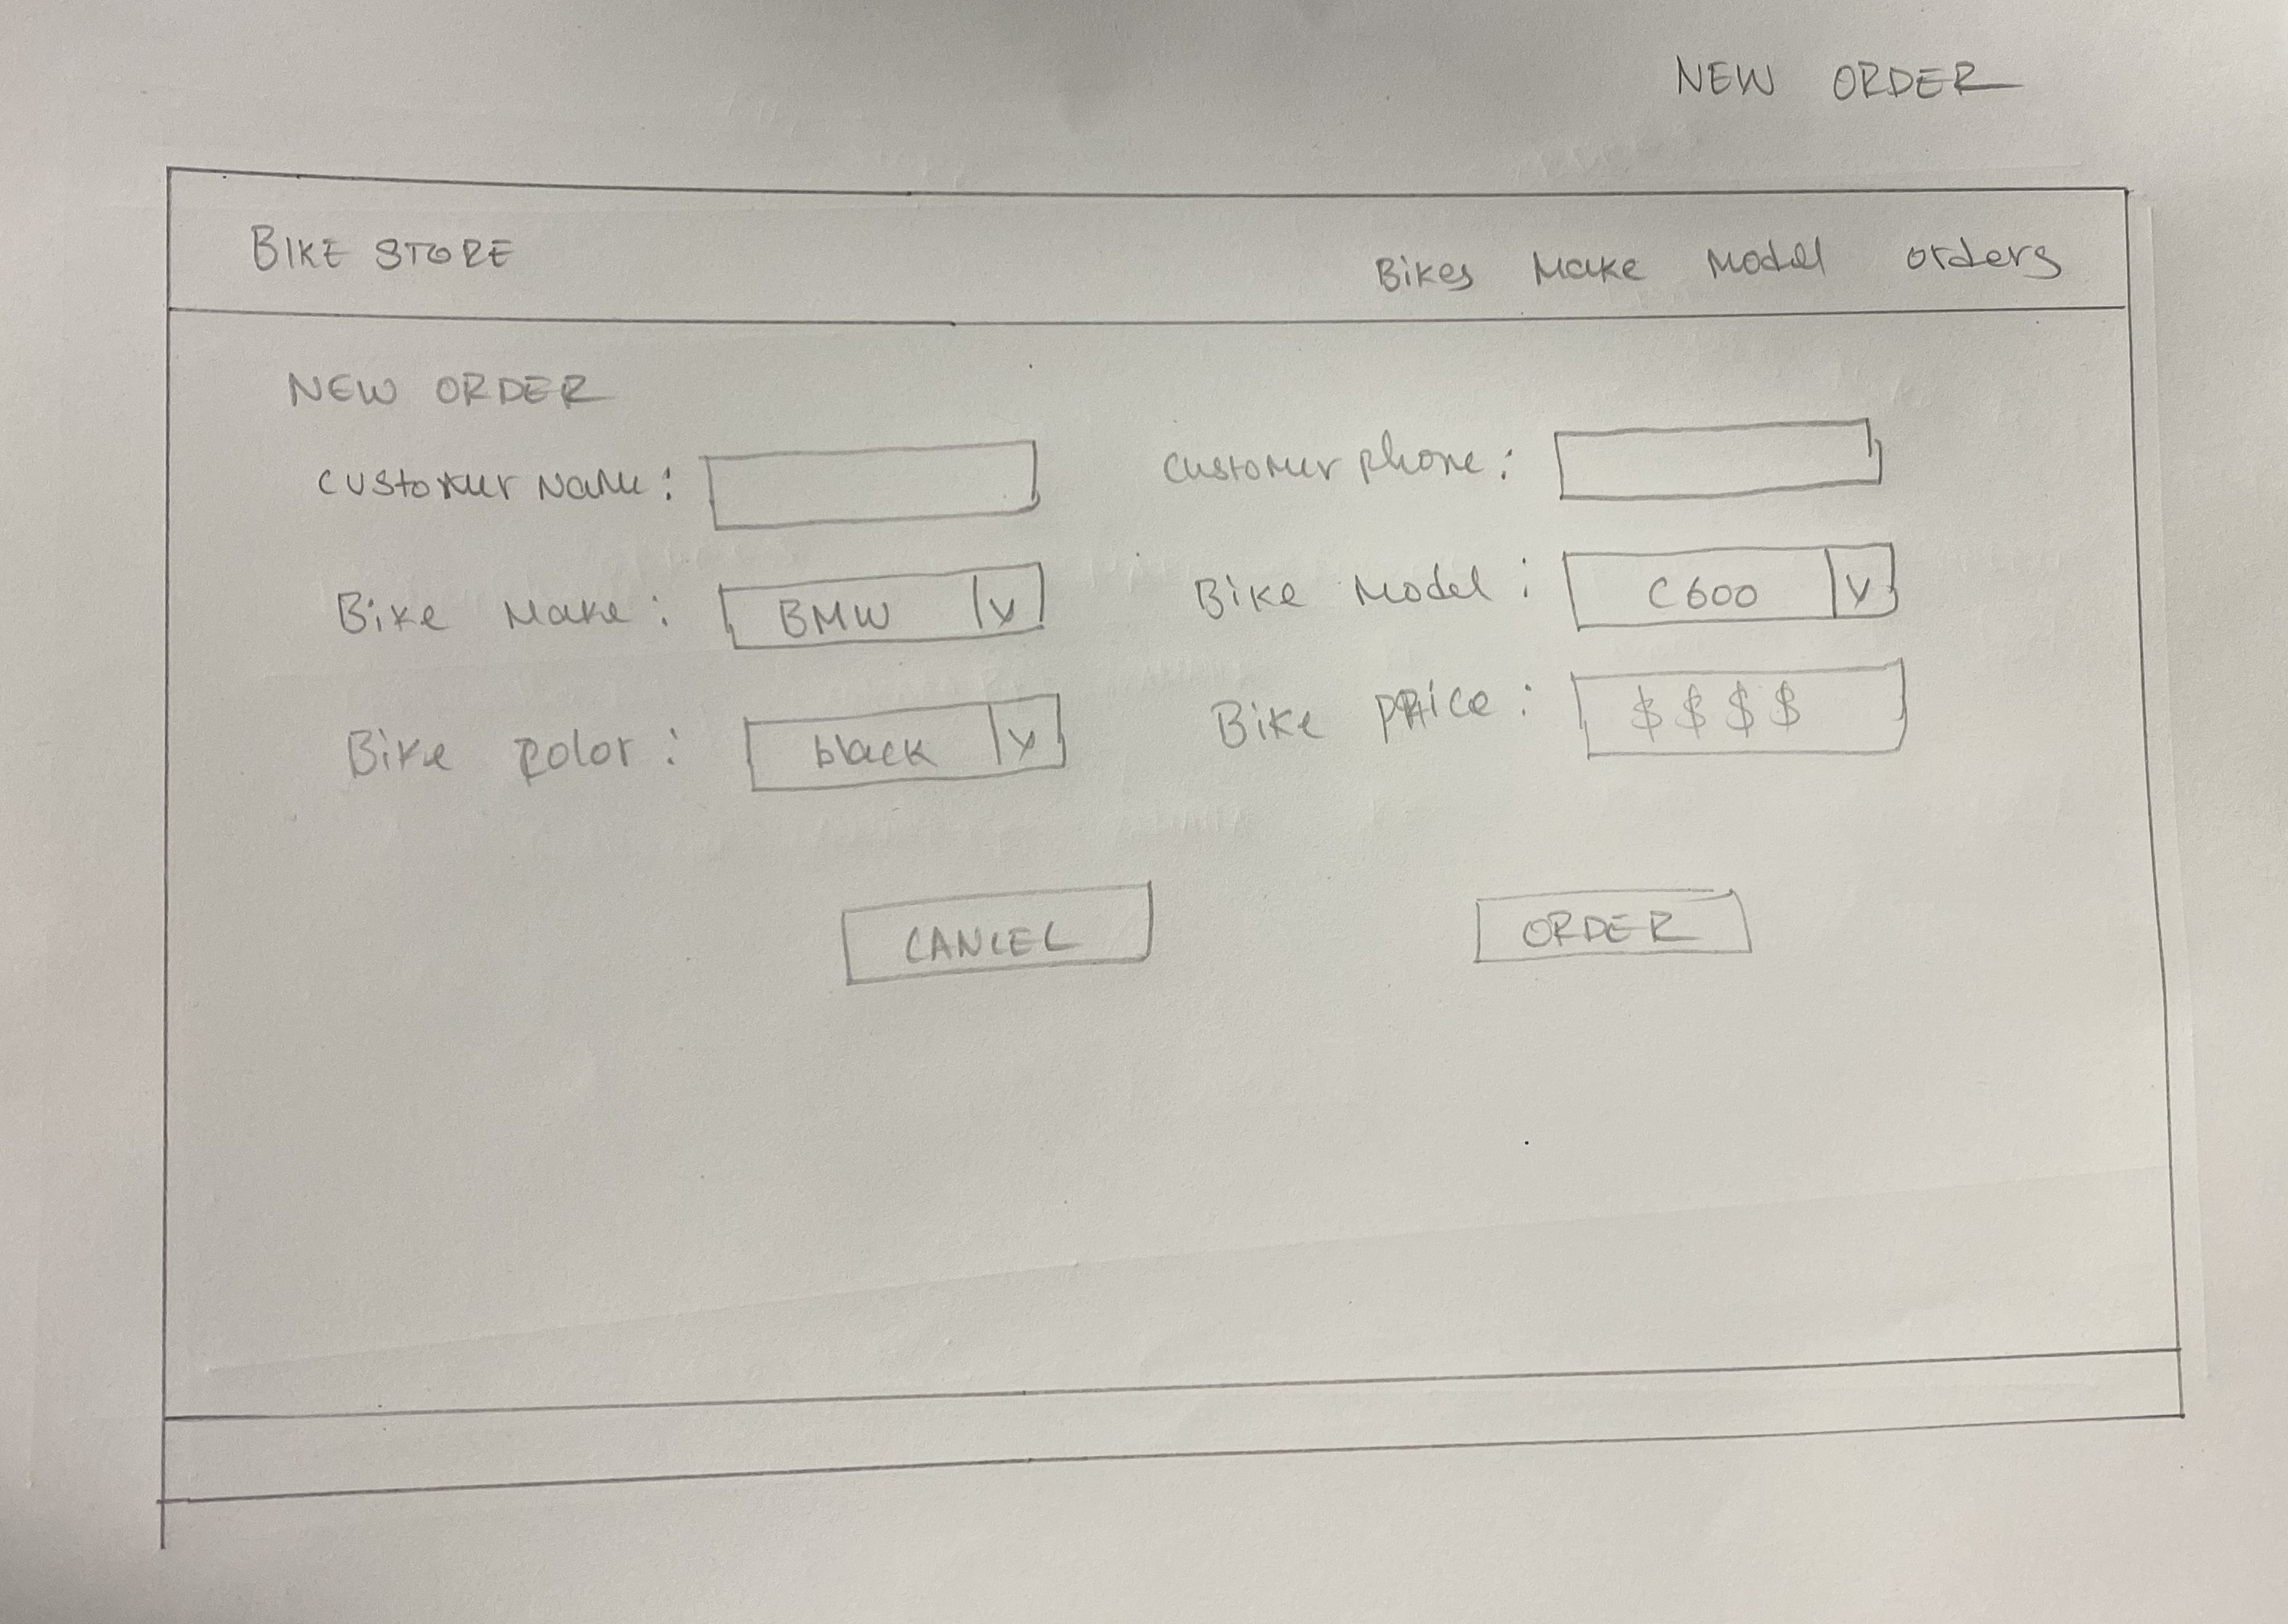 NEW ORDER
BIKE STORE Bikes Make Model orders
NEW ORDER
customer Name: customer phone:
Bike Make: BMW v Bike Model: C600 v
Bike color: black v Bike price: $$$$
CANCEL ORDER